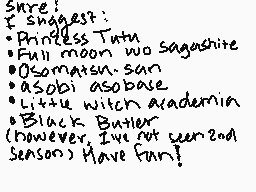 sure!
I suggest:
•Princess Tutu
•Full moon wo sagashite
•Osomatsu-san
•asobi asobase
•Little witch academia
•Black Butler
(however, I've not seen 2nd
season) Have fun!